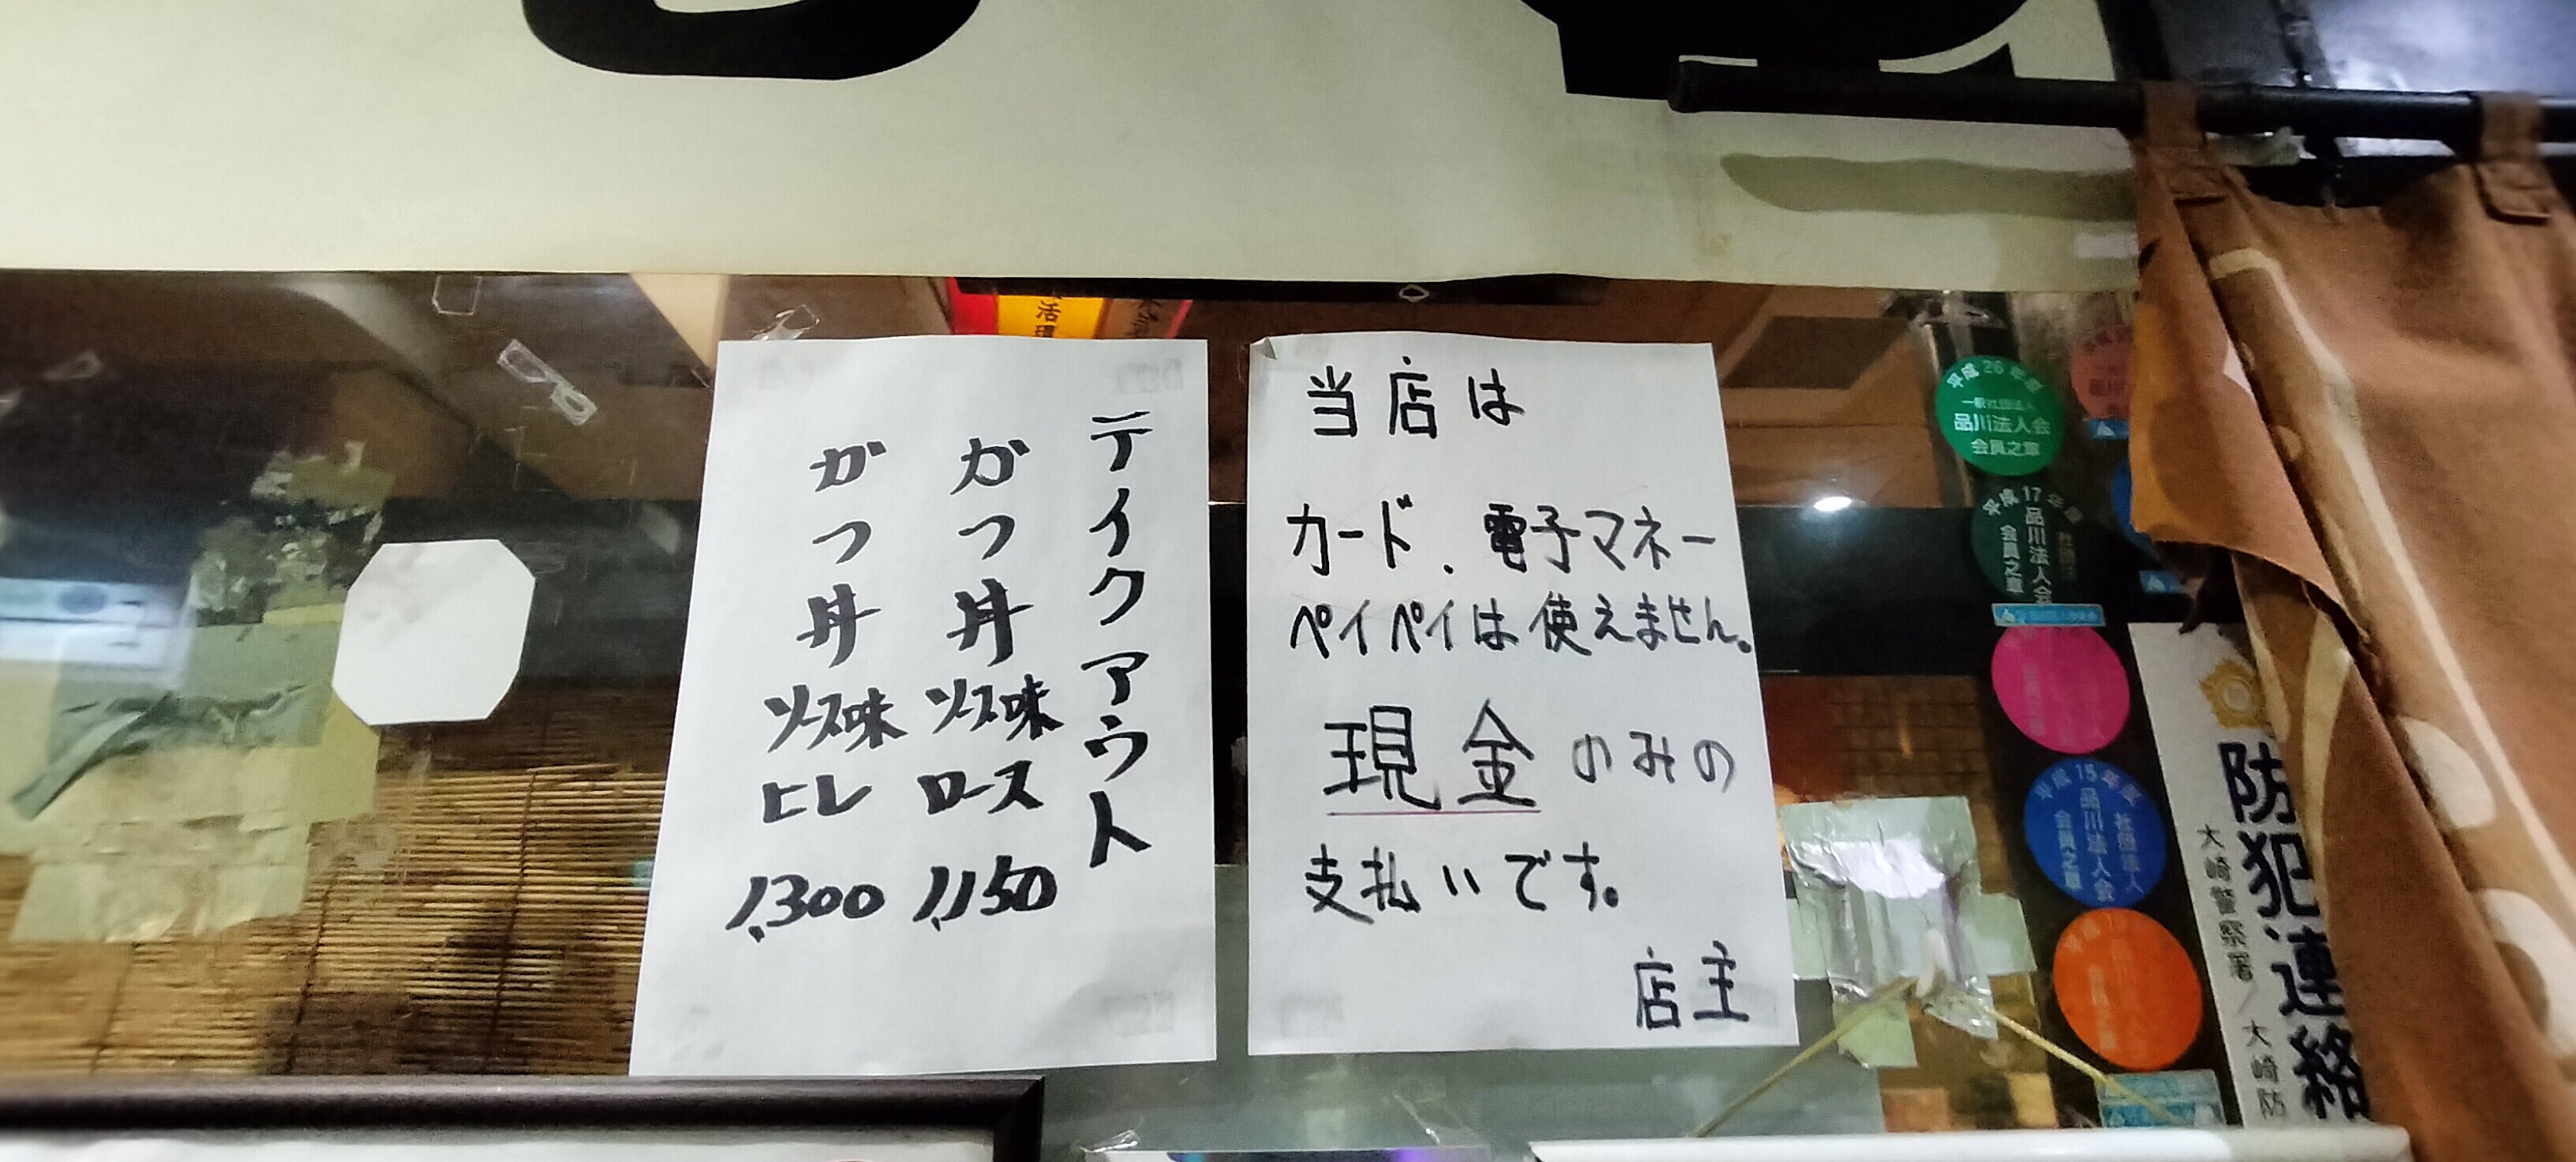 テイクアウト
かつ丼 ソース味 ロース 1,150
かつ丼 ソース味 ヒレ 1,300
当店は
カード.電子マネー
ペイペイは使えません。
現金のみの
支払いです。
店主
平成26年度
一般社団法人
品川法人会
会員之章
平成17年度
社団法人
品川法人会
会員之章
平成15年度
社団法人
品川法人会
会員之章
防犯連絡
大崎警察署/大崎防